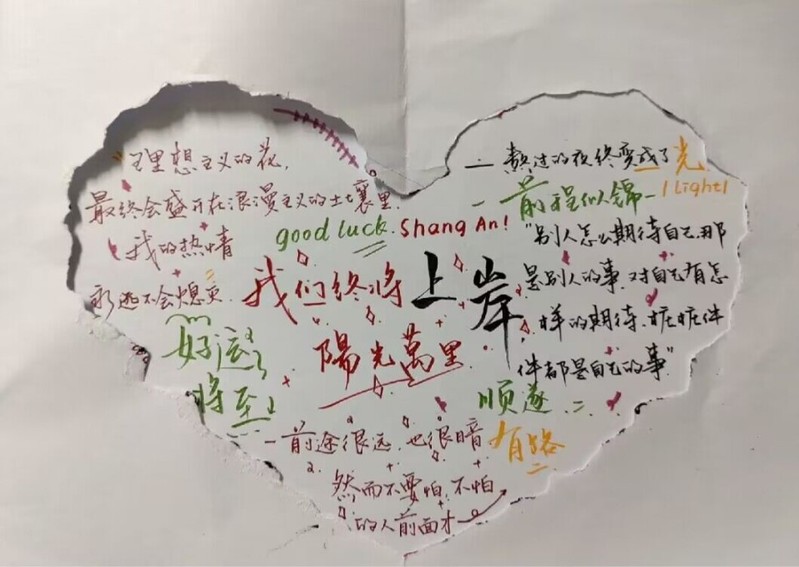 "理想主义的花,
最终会盛开在浪漫主义的土壤里.
我的热情
永远不会熄灭"
一熬过的夜终变成了光
|Light|
一前程似锦一
good luck. Shang An!
"别人怎么期待自己.那
是别人的事.对自己有怎
样的期待.桩桩件
件都是自己的事"
我们终将上岸
陽光萬里
好运
将至
顺遂
一前途很远.也很暗
然而不要怕.不怕
的人前面才
有路